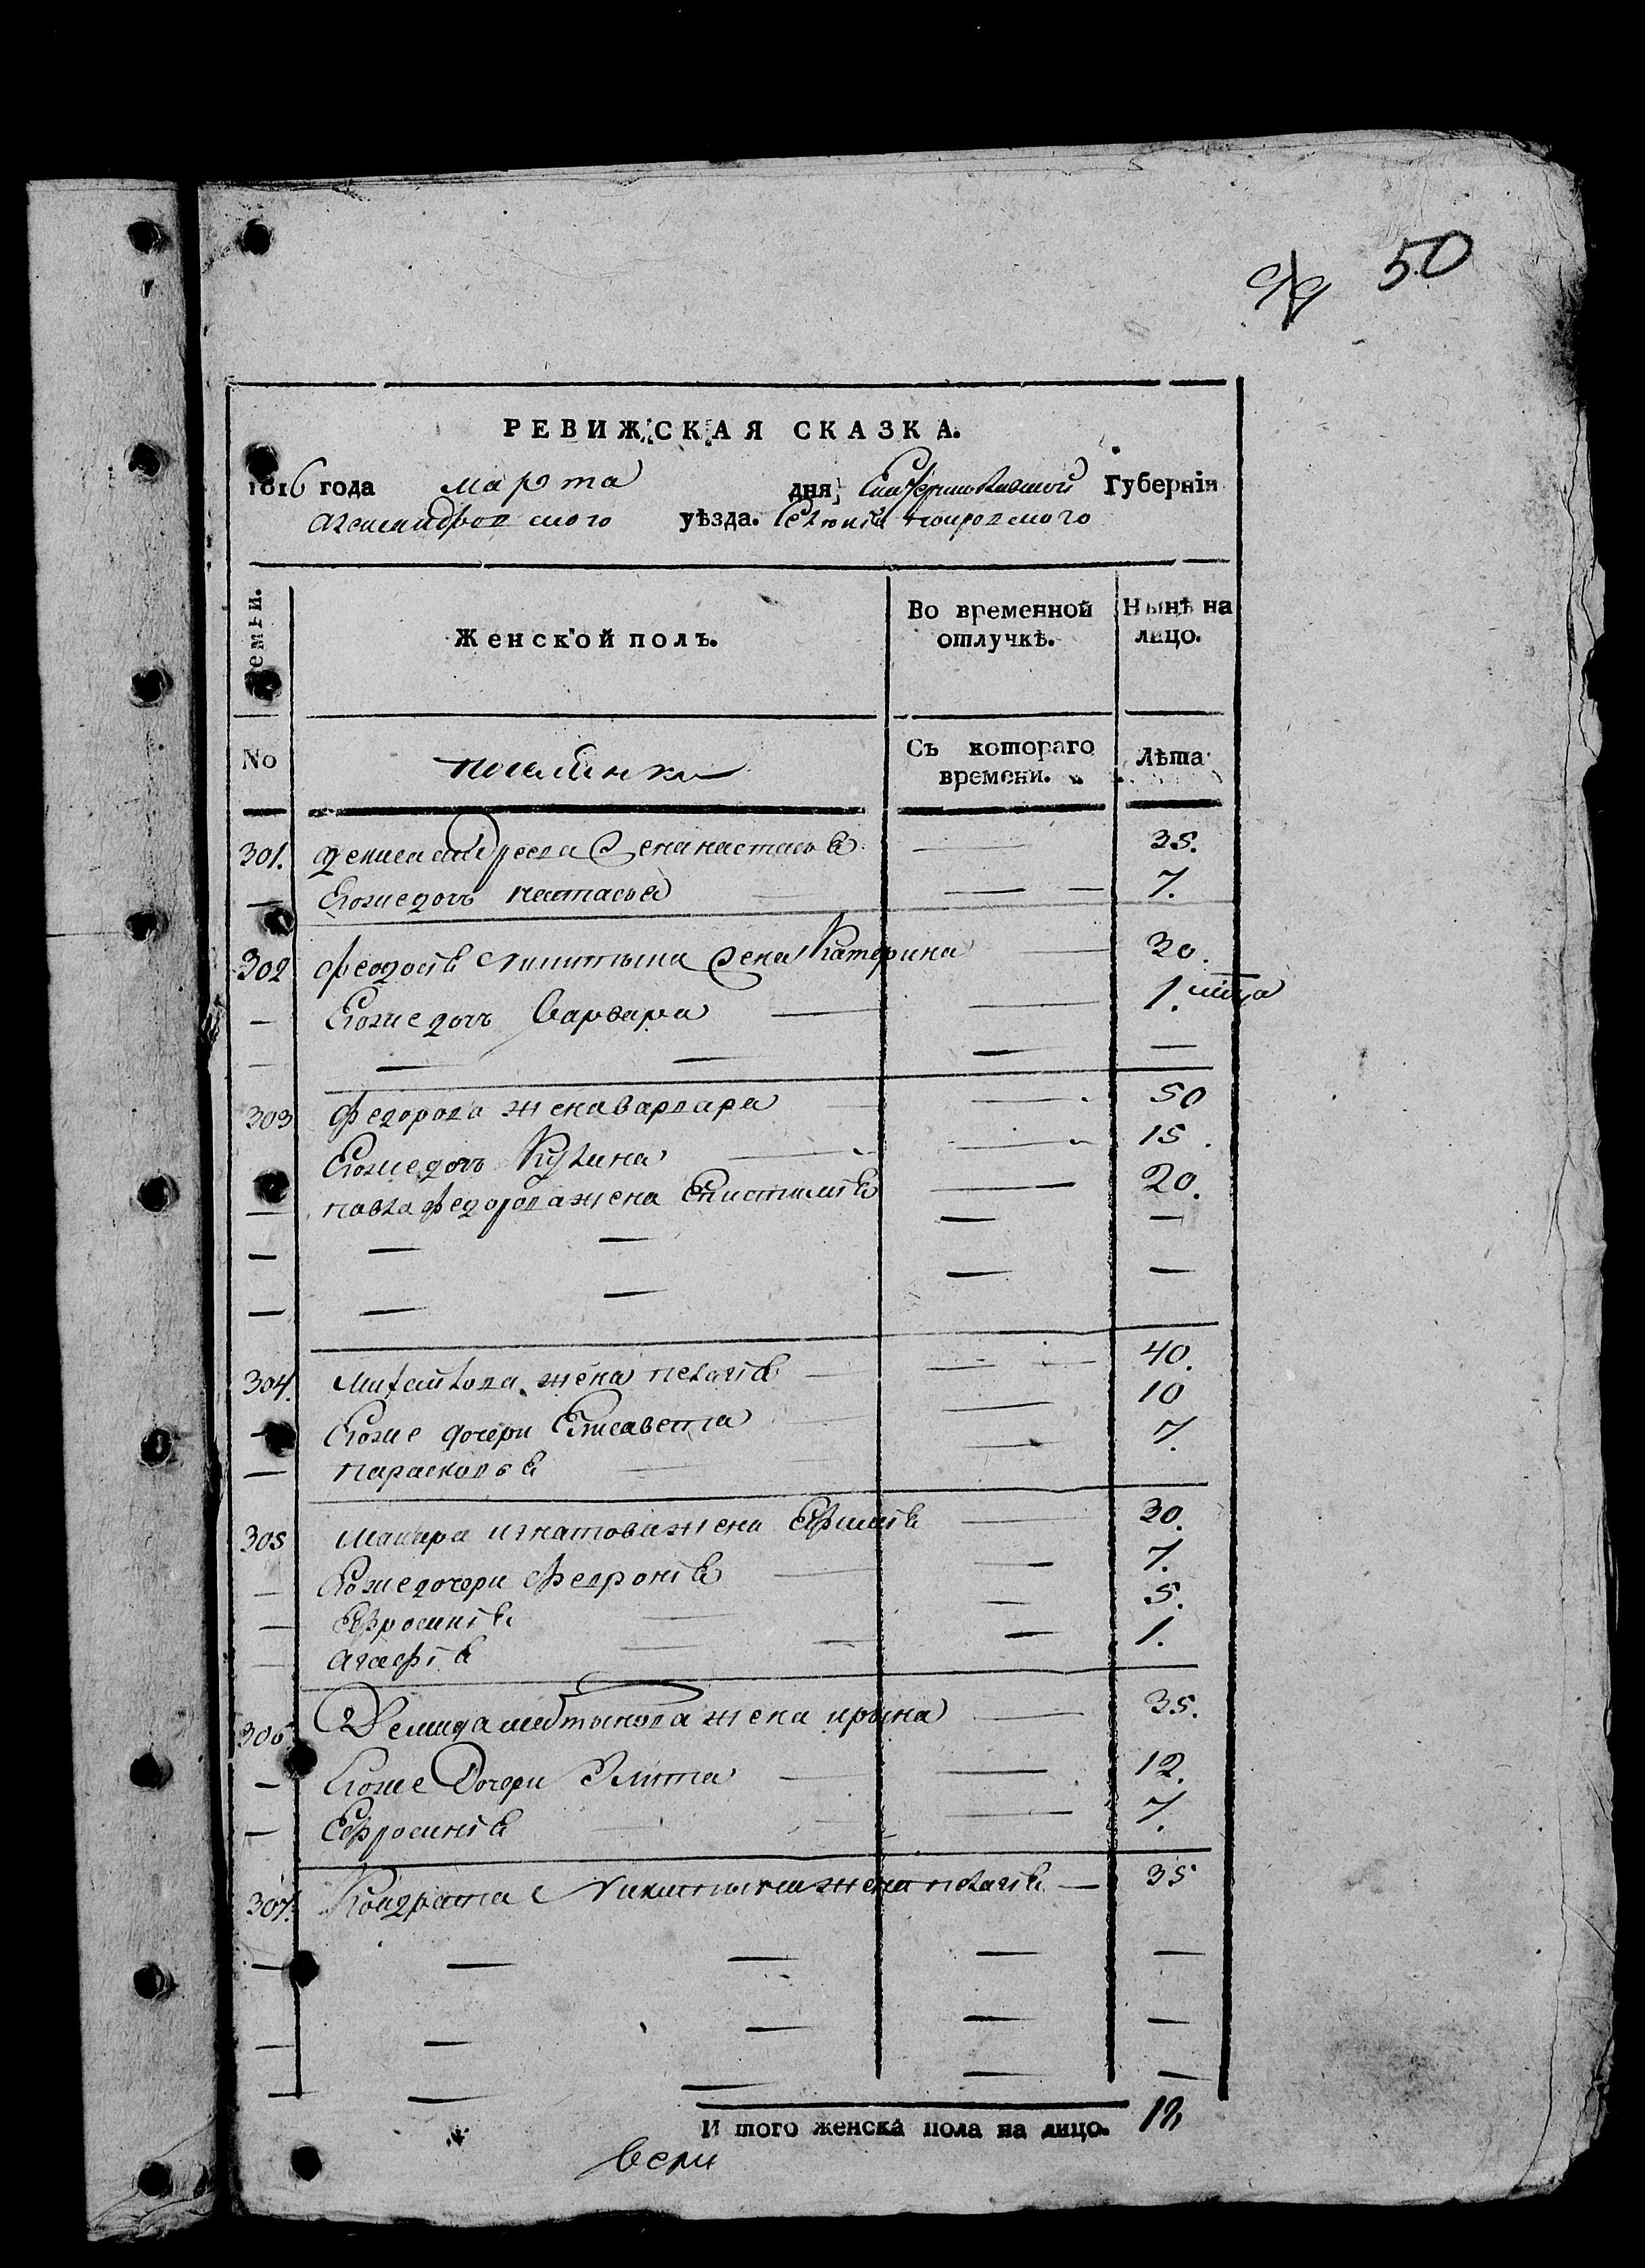 50
РЕВИЖСКАЯ СКАЗКА.
1816 года марта дня, Екатеринославской Губернїи
Александровского уѣзда. Селенїя
Семьи.
Женской полъ.
Во временной отлучкѣ.
Нынѣ на лицо.
No
поселянки
Съ котораго времени.
Лѣта
301. Дениса Андреева жена настасья — 35.
— Егоже дочь настасья — 7.
302 Феодосія Никитина жена Катерина — 30.
— Егоже дочь Варвара — 1. мца
303 Федорова жена Варвара — 50
Егоже дочь — 15.
— павла Федорова жена Епистимія — 20.
304. Михайлова жена пелагія — 40.
— Егоже дочери Елисавета — 10
— парасковья — 7.
305 Макара игнатова жена Ефимія — 30.
— Егоже дочери Февронія — 7.
— Ефросинія — 5.
— агафія — 1.
306. Демида жена ирина — 35.
— Егоже Дочери — 12.
— Ефросинія — 7.
307. Кондрата Никитина жена пелагія — 35
И того женска пола на лицо. 18